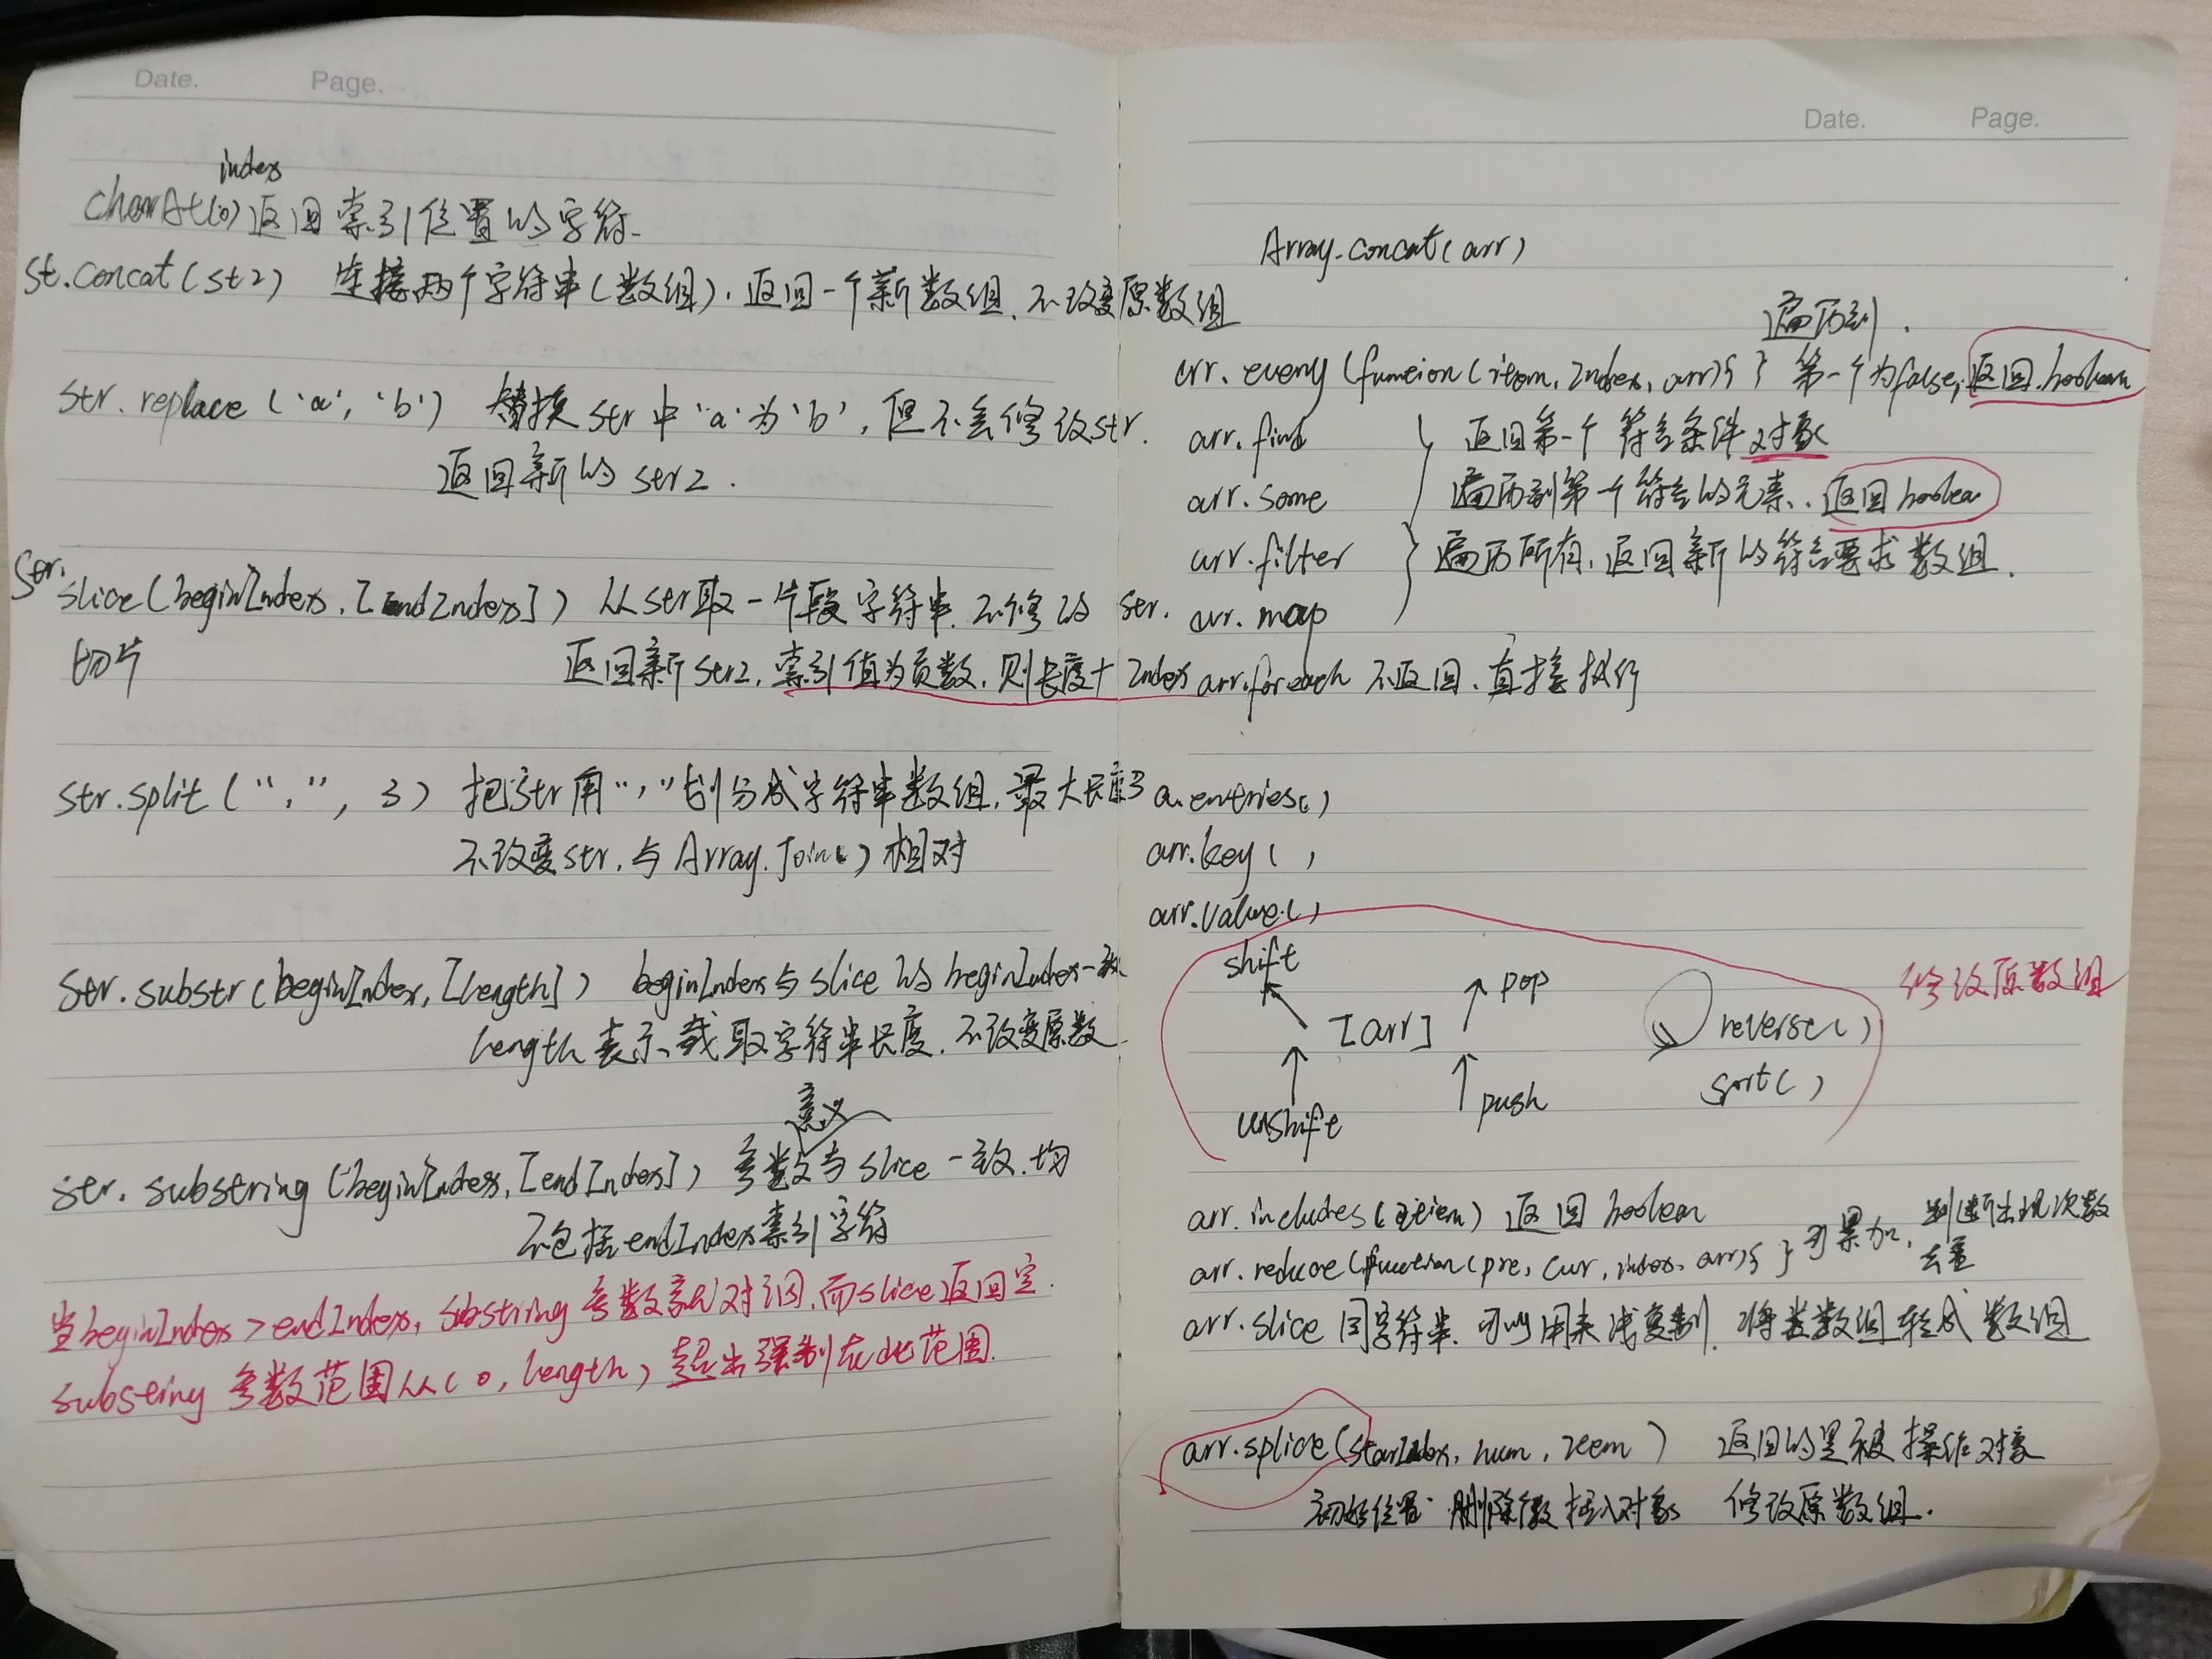 Date. Page.
index
charAt(0) 返回索引位置的字符.
st.concat(st2) 连接两个字符串(数组), 返回一个新数组, 不改变原数组
str.replace('a', 'b') 替换str中'a'为'b', 但不会修改str.
返回新的str2.
str.
slice(beginIndex, [endIndex]) 从str取一片段字符串, 不修改str.
切片 返回新str2, 索引值为负数, 则长度+Index
str.split(",", 3) 把str用","划分成字符串数组, 最大长度3
不改变str, 与Array.join()相对
str.substr(beginIndex, [length]) beginIndex与slice的beginIndex一致
length表示截取字符串长度, 不改变原数
意义
str.substring(beginIndex, [endIndex]) 参数与slice一致, 均
不包括endIndex索引字符
当beginIndex>endIndex, substring参数就对调, 而slice返回空.
substring参数范围从(0, length) 超出强制在此范围.
Date. Page.
Array.concat(arr)
遍历到.
arr.every(function(item, Index, arr){ } 第一个为false, 返回boolean
arr.find } 返回第一个符合条件对象
arr.some 遍历到第一个符合的元素, 返回boolea
arr.filter } 遍历所有, 返回新的符合要求数组.
arr.map
arr.foreach 不返回, 直接执行
a.entries()
arr.key()
arr.value()
shift pop
[arr] reverse() 修改原数组
sort()
unshift push
arr.includes(item) 返回boolean
arr.reduce(function(pre, cur, index, arr){ } 可累加, 判断出现次数
去重
arr.slice 同字符串, 可以用来浅复制, 将类数组转成数组
arr.splice(starIndex, num, item) 返回的是被操作对象
初始位置 删除数 插入对象 修改原数组.